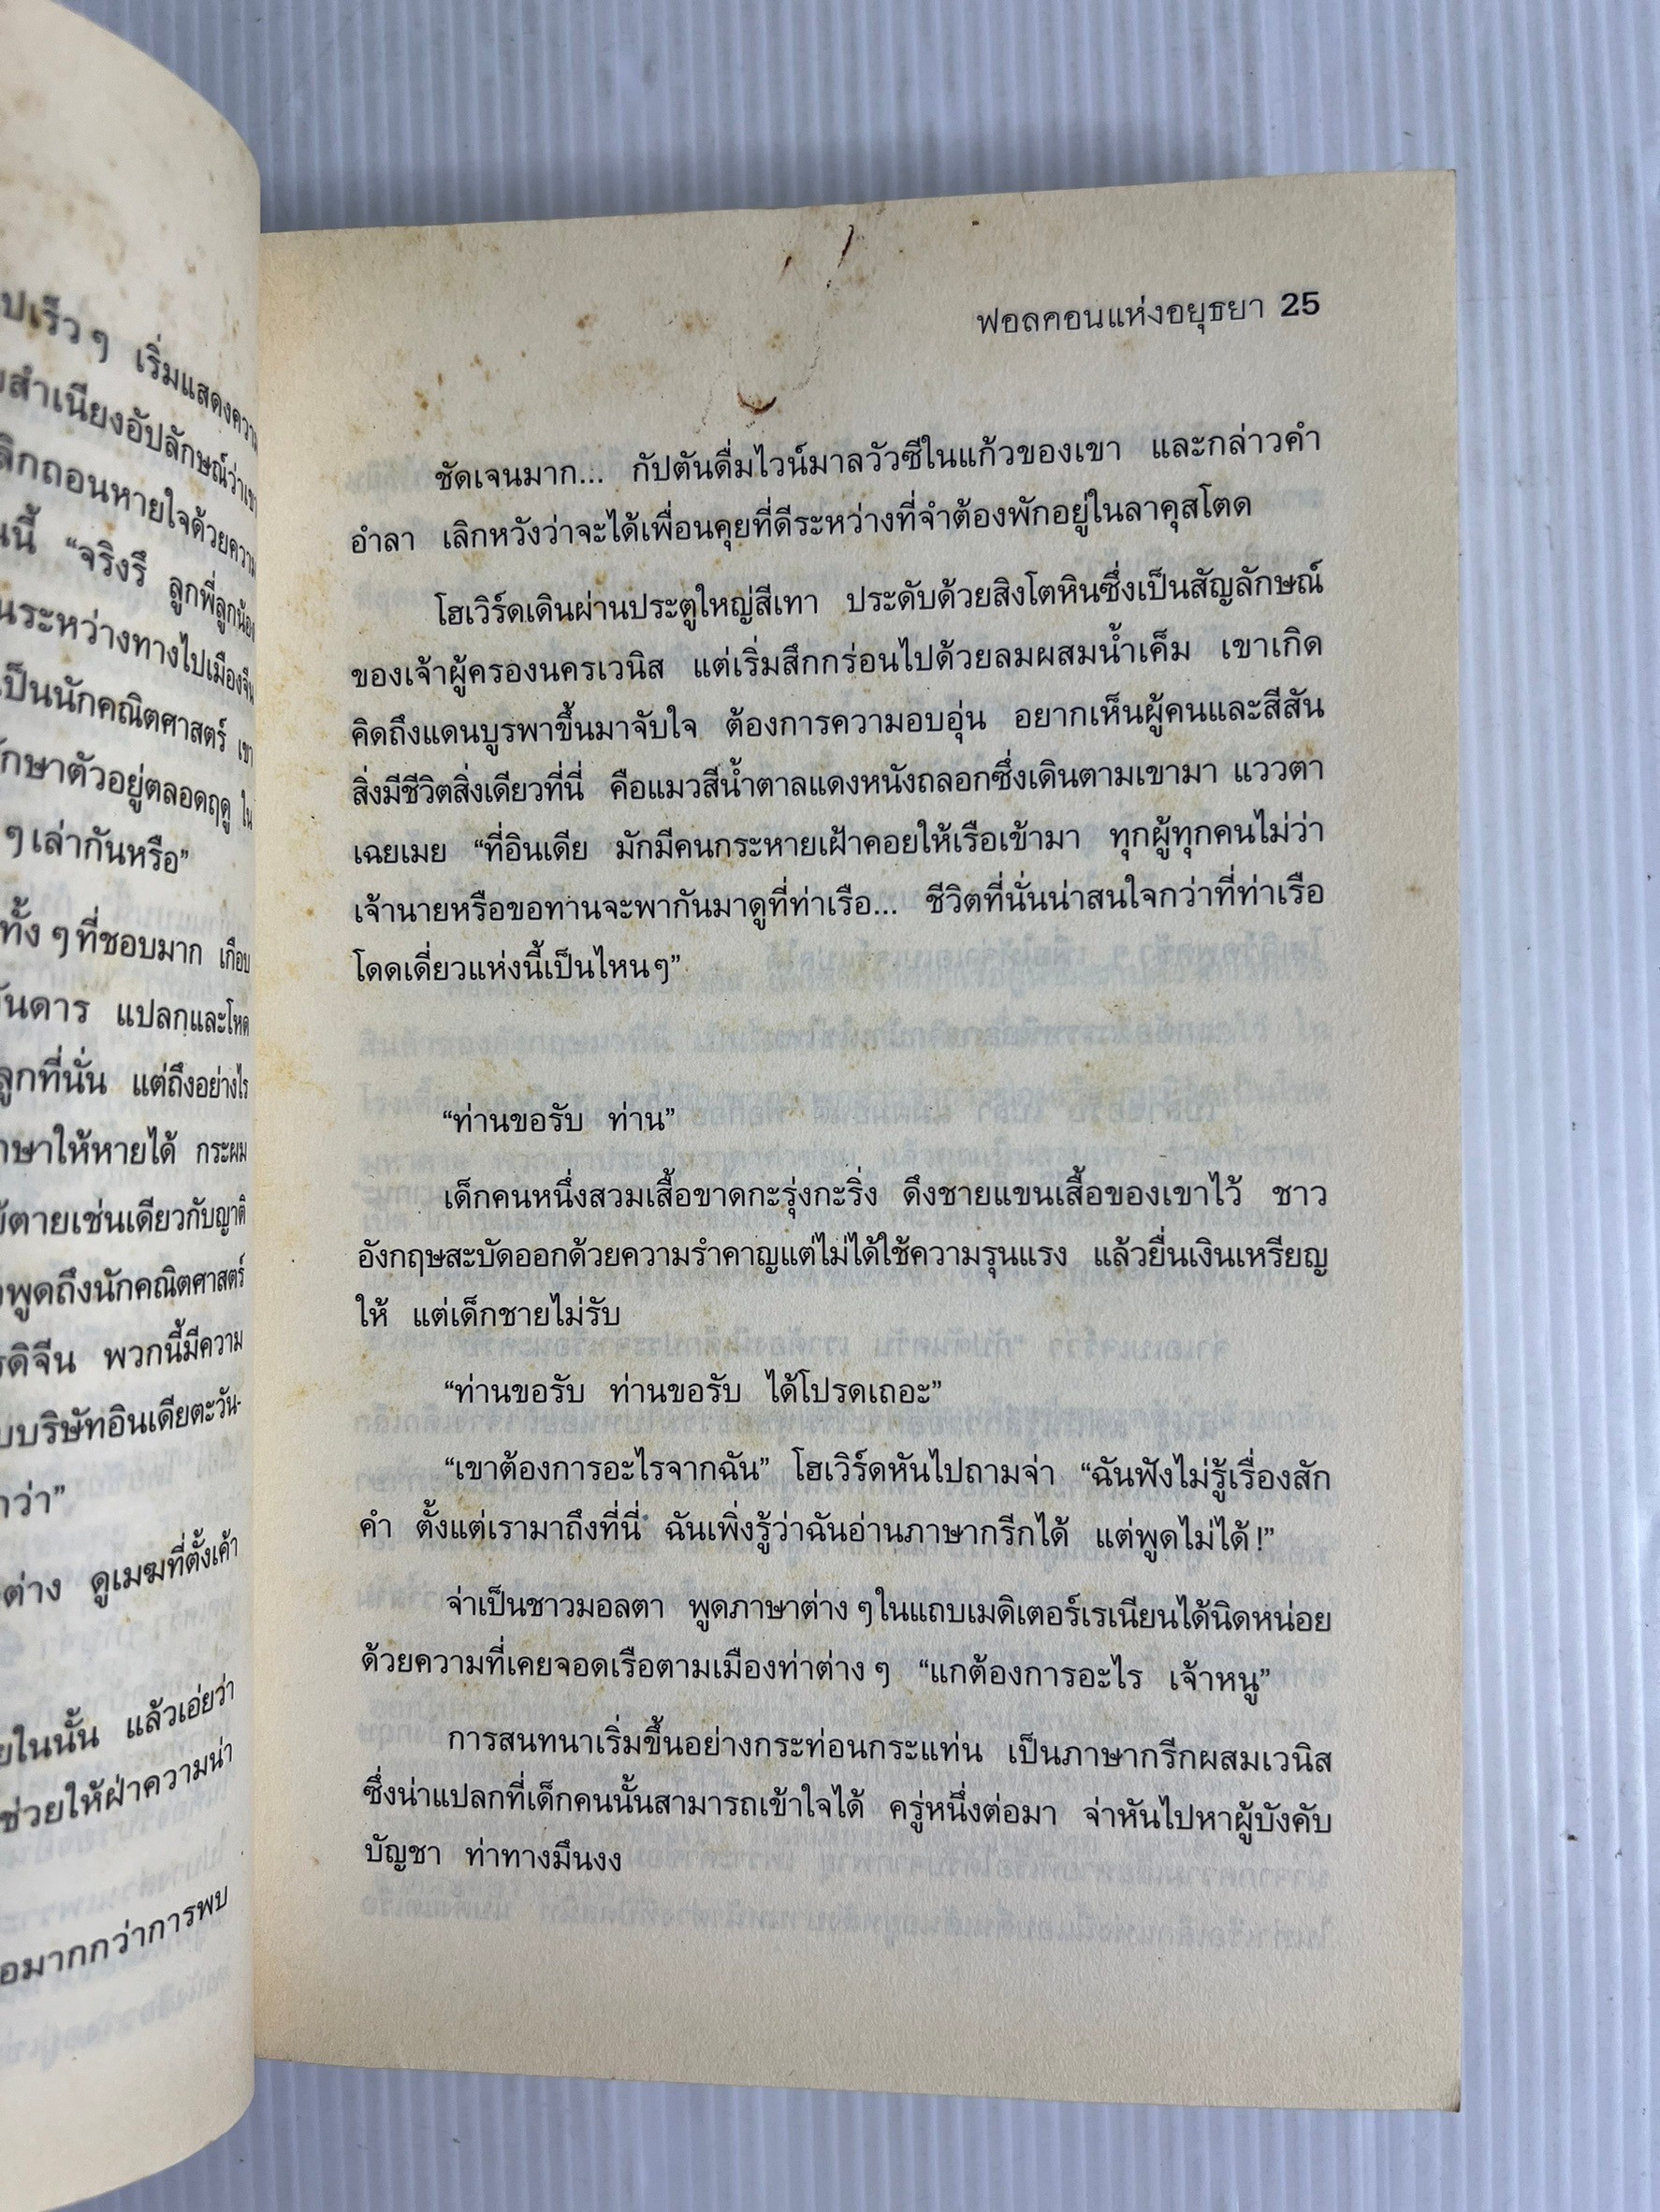 ปเร็ว ๆ เริ่มแสดงความ
สำเนียงอัปลักษณ์ว่าเขา
ลิกถอนหายใจด้วยความ
นี้ “จริงรึ ลูกพี่ลูกน้อง
นระหว่างทางไปเมืองจีน
เป็นนักคณิตศาสตร์ เขา
ักษาตัวอยู่ตลอดฤดู ใน
ๆ เล่ากันหรือ”
ทั้ง ๆ ที่ชอบมาก เกือบ
ันดาร แปลกและโหด
ลูกที่นั่น แต่ถึงอย่างไร
าษาให้หายได้ กระผม
ตายเช่นเดียวกับญาติ
พูดถึงนักคณิตศาสตร์
รดิจีน พวกนี้มีความ
บบริษัทอินเดียตะวัน-
าว่า”
ต่าง ดูเมฆที่ตั้งเค้า
ยในนั้น แล้วเอ่ยว่า
ช่วยให้ฝ่าความน่า
อมากกว่าการพบ
ฟอลคอนแห่งอยุธยา 25
ชัดเจนมาก... กัปตันดื่มไวน์มาลวัวซีในแก้วของเขา และกล่าวคำ
อำลา เลิกหวังว่าจะได้เพื่อนคุยที่ดีระหว่างที่จำต้องพักอยู่ในลาคุสโตด
โฮเวิร์ดเดินผ่านประตูใหญ่สีเทา ประดับด้วยสิงโตหินซึ่งเป็นสัญลักษณ์
ของเจ้าผู้ครองนครเวนิส แต่เริ่มสึกกร่อนไปด้วยลมผสมน้ำเค็ม เขาเกิด
คิดถึงแดนบูรพาขึ้นมาจับใจ ต้องการความอบอุ่น อยากเห็นผู้คนและสีสัน
สิ่งมีชีวิตสิ่งเดียวที่นี่ คือแมวสีน้ำตาลแดงหนังถลอกซึ่งเดินตามเขามา แววตา
เฉยเมย “ที่อินเดีย มักมีคนกระหายเฝ้าคอยให้เรือเข้ามา ทุกผู้ทุกคนไม่ว่า
เจ้านายหรือขอทานจะพากันมาดูที่ท่าเรือ... ชีวิตที่นั่นน่าสนใจกว่าที่ท่าเรือ
โดดเดี่ยวแห่งนี้เป็นไหน ๆ”
“ท่านขอรับ ท่าน”
เด็กคนหนึ่งสวมเสื้อขาดกะรุ่งกะริ่ง ดึงชายแขนเสื้อของเขาไว้ ชาว
อังกฤษสะบัดออกด้วยความรำคาญแต่ไม่ได้ใช้ความรุนแรง แล้วยื่นเงินเหรียญ
ให้ แต่เด็กชายไม่รับ
“ท่านขอรับ ท่านขอรับ ได้โปรดเถอะ”
“เขาต้องการอะไรจากฉัน” โฮเวิร์ดหันไปถามจ่า “ฉันฟังไม่รู้เรื่องสัก
คำ ตั้งแต่เรามาถึงที่นี่ ฉันเพิ่งรู้ว่าฉันอ่านภาษากรีกได้ แต่พูดไม่ได้ !”
จ่าเป็นชาวมอลตา พูดภาษาต่าง ๆ ในแถบเมดิเตอร์เรเนียนได้นิดหน่อย
ด้วยความที่เคยจอดเรือตามเมืองท่าต่าง ๆ “แกต้องการอะไร เจ้าหนู”
การสนทนาเริ่มขึ้นอย่างกระท่อนกระแท่น เป็นภาษากรีกผสมเวนิส
ซึ่งน่าแปลกที่เด็กคนนั้นสามารถเข้าใจได้ ครู่หนึ่งต่อมา จ่าหันไปหาผู้บังคับ
บัญชา ท่าทางมึนงง